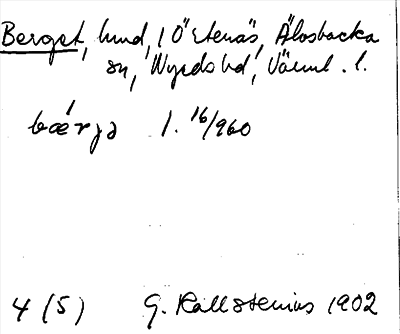 Berget, hmd, i Ö Stenäs, Älvsbacka
sn, Nyeds hd, Värml. l.
bærjə l. 16/960
4 (5) G. Kallstenius 1902